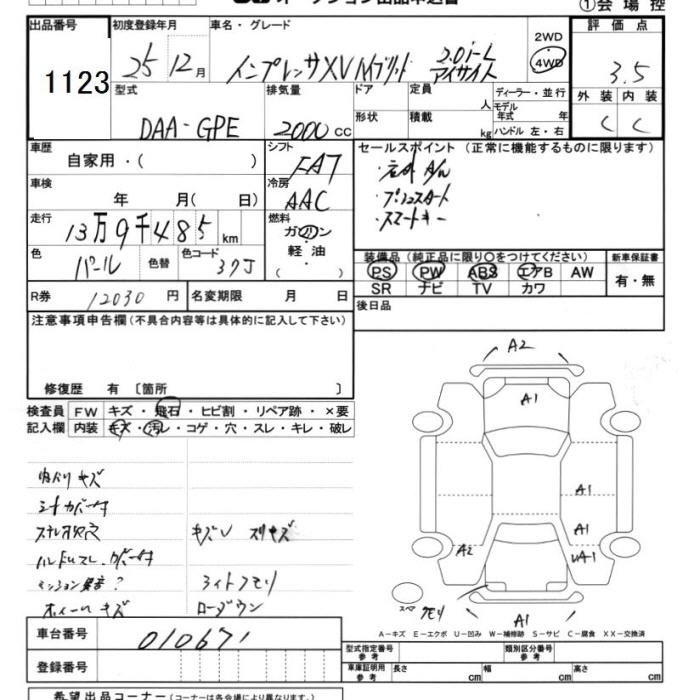 オークション出品申込書
①会場控
出品番号 1123
初度登録年月 25 12月
車名・グレード インプレッサXV ハイブリッド 2.0i-L アイサイト
2WD 4WD
評価点 3.5
型式 DAA-GPE
排気量 2000cc
ドア 形状
定員 人
積載 kg
ディーラー・並行
モデル年式 年
ハンドル 左・右
外装 C
内装 C
車歴 自家用・( )
シフト FAT
セールスポイント (正常に機能するものに限ります)
・プッシュスタート
・スマートキー
車検 年 月( 日)
冷房 AAC
走行 13万9千485km
燃料 ガソリン 軽油 ( )
色 パール 色替 色コード 37J
装備品 (純正品に限り○をつけてください)
新車保証書
PS PW ABS エアB AW
SR ナビ TV カワ
有・無
R券 12030円 名変期限 月 日
後日品
注意事項申告欄(不具合内容等は具体的に記入して下さい)
修復歴 有〔箇所 〕
検査員 FW キズ・飛石・ヒビ割・リペア跡・×要
記入欄 内装 キズ・汚レ・コゲ・穴・スレ・キレ・破レ
内ハリキズ
シートカバー付
キズU スリキズ
ハンドルスレ、カバー付
ミッション異音?
ライトクモリ
ホイールキズ
ローダウン
A2
A1
A1
A1
A2
UA1
スペア
クモリ
A1
A-キズ E-エクボ U-凹み W-補修跡 S-サビ C-腐食 XX-交換済
車台番号 010671
型式指定番号 参考
類別区分番号 参考
登録番号
車庫証明用 参考 長さ cm 幅 cm 高さ cm
希望出品コーナー(コーナーは各会場により異なります)